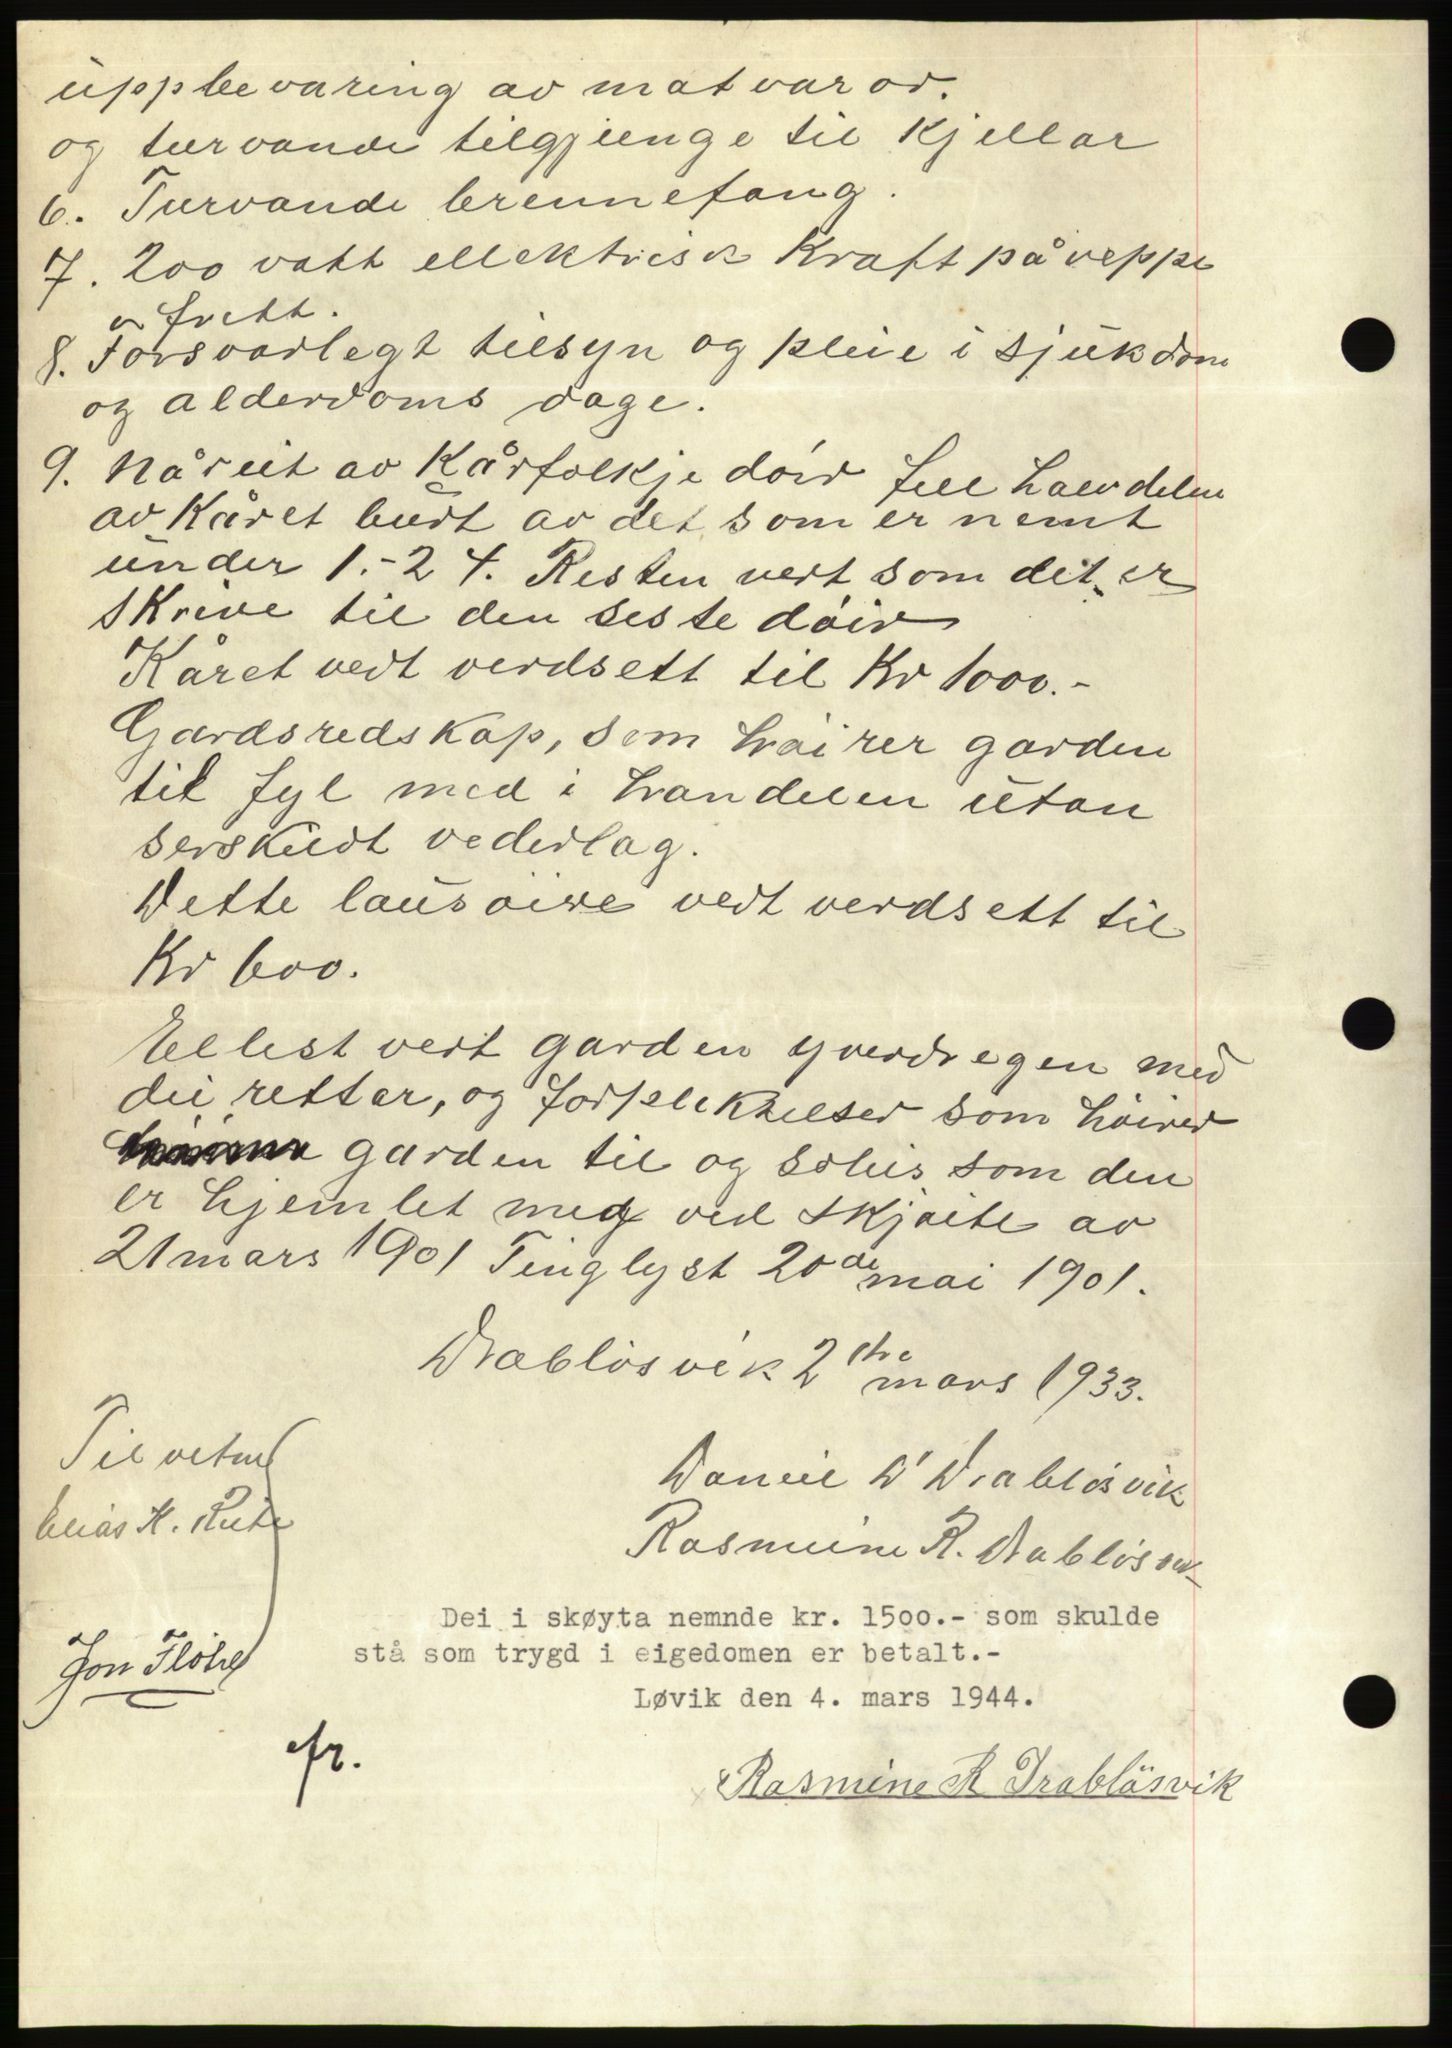 uppbevaring av matvaror.
og turvande tilgjenge til Kjellar
6. Turvande brennefang.
7. 200 vatt ellektrisk Kraft på veppe
fritt.
8. Forsvarlegt tilsyn og pleie i sjukdom
og alderdoms dage.
9. Når eit av Kårfolkje döir fell halvdelen
av Kåret burt av det som er nemt
under 1.-2 4. Resten vert som det er
skrive til den seste döir
Kåret vert verdsett til Kr 1000.-
Gardsredskap, som höirer garden
til fyl med i handelen utan
serskildt vederlag.
Dette lausöire vert verdsett til
Kr 600.
Ellest vert garden yverdregen med
dei rettar, og forpliktelser som höirer
garden til og soleis som den
er hjemlet meg ved skjöite av
21 mars 1901 Tinglyst 20de mai 1901.
Drablösvik 2dre mars 1933.
Til vitne
Daniel D Drablösvik
Elias K. Rite
Rasmine R. Drablösvik
Dei i skøyta nemnde kr. 1500.- som skulde
stå som trygd i eigedomen er betalt.-
Jon Flötre
Løvik den 4. mars 1944.
fr.
Rasmine R Drablösvik